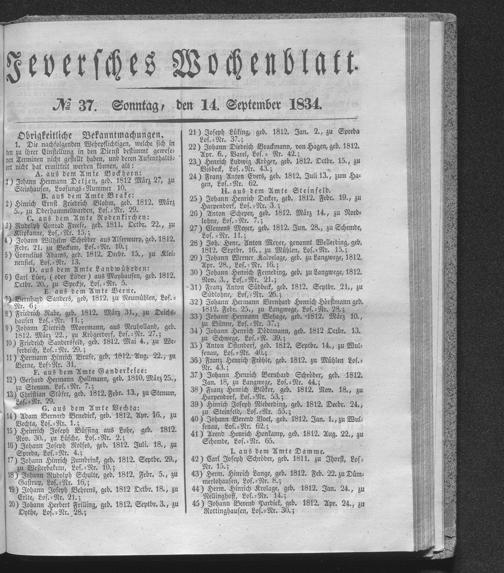 Jeversches Wochenblatt.
№ 37. Sonntag, den 14. September 1834.
Obrigkeitliche Bekanntmachungen.
1. Die nachfolgenden Wehrpflichtigen, welche sich in
den zu ihrer Einstellung in den Dienst bestimmt gewese-
nen Terminen nicht gestellt haben, und deren Aufenthalts-
ort nicht hat ermittelt werden können, als:
A. aus dem Amte Bockhorn:
1) Johann Hermann Detjen, geb. 1812 März 27, zu
Steinhausen, Loosungs-Nummer 10.
B. aus dem Amte Brake:
2) Hinrich Ernst Friedrich Blohm, geb. 1812, März
5., zu Oberhammelwarden, Los.-Nr. 29.
C. aus dem Amte Rodenkirchen:
3) Rudolph Conrad Freese, geb. 1811. Octbr. 22., zu
Klipkanne, Los.-Nr. 13.;
4) Johann Wilhelm Schröder aus Alserwurp, geb. 1812,
Febr. 21. zu Beckum, Los.-Nr. 10.;
5) Cornelius Adams, geb. 1812. Octbr. 15., zu Klei-
nensiel, Los.-Nr. 13.
D. aus dem Amte Landwührden:
6) Carl Lüer, (oder Lüder) aus Maihausen, geb. 1812,
Octbr. 20., zu Specke, Los.-Nr. 5.
E. aus dem Amte Berne.
7) Bernhard Sanders, geb. 1812. zu Neumühlen, Los.-
Nr. 6;
8) Friedrich Nabe, geb. 1812. März 31., zu Deichs-
hausen, Los.-Nr. 11.;
9) Johann Dietrich Moormann, aus Neuholland, geb.
1812. März 22., zu Krögerdorf, Los.-Nr. 27.;
10) Friedrich Sandersfeld, geb. 1812. Mai 4., zu Wa-
rfedeich, Los.-Nr. 29.;
11) Hermann Hinrich Bruse, geb. 1812. Aug. 22., zu
Berne, Los.-Nr. 31.
F. aus dem Amte Ganderkesee:
12) Gerhard Hermann Hollmann, geb. 1810. März 25.,
zu Stenum, Los.-Nr. 7.;
13) Christian Stöfer, geb. 1812. Febr. 13., zu Stenum,
Los.-Nr. 29.
G. aus dem Amte Vechta:
14) Adam Berneth Benedict, geb. 1812, Apr. 16., zu
Vechta, Los.-Nr. 1.;
15) Heinrich Joseph Büssing aus Lohe, geb. 1812.
Nov. 30., zu Lüsche, Los.-Nr. 2.;
16) Johann Joseph Kossel, geb. 1812. Juli. 18., zu
Spreda, Los.-Nr. 4.;
17) Johann Hinrich Zumbrink, geb. 1812. Septbr. 29.,
zu Westerbakum, Los.-Nr. 10.;
18) Johann Rudolph Schulte, geb. 1812. Febr. 5., zu
Gastrup, Los.-Nr. 16.;
19) Johann Joseph Behrens, geb. 1812. Octbr. 18., zu
Erlte, Los.-Nr. 21.;
20) Johann Herbert Frilling, geb. 1812. Septbr. 3., zu
Oythe, Los.-Nr. 28.;
21) Joseph Lüking, geb. 1812. Jan. 2., zu Spreda
Los.-Nr. 37.;
22) Johann Diedrich Brackmann, von Hagen, geb. 1812.
Apr. 6., Varel, Los.-Nr. 42.;
23) Hinrich Ludwig Kröger, geb. 1812. Octbr. 15., zu
Bisbeck, Los.-Nr. 43.;
24) Franz Anton Evers, geb. 1812, Juli 13., zum Ha-
gen, Los.-Nr. 62.
H. aus dem Amte Steinfeld.
25) Johann Henrich Decker, geb. 1812. Febr. 19., zu
Harpendorf, Los.-Nr. 3.;
26) Anton Scheper, geb. 1812. März 14., zu Nord-
lohne, Los.-Nr. 7.;
27) Clement Moyer, geb. 1812. Jun. 28., zu Schemde,
Los.-Nr. 11.;
28) Joh. Henr. Anton Meyer, genannt Wöllering, geb.
1812. Septbr. 16., zu Mühlen, Los.-Nr. 15.;
29) Johann Werner Kalvelage, zu Langwege, geb. 1812.
Apr. 28., Los.-Nr. 16.;
30) Johann Henrich Femeding, geb. zu Langwege, 1812.
Nov. 3., Los.-Nr. 21.;
31) Franz Anton Südbeck, geb. 1812. Septbr. 21., zu
Südlohne, Los.-Nr. 26.;
32) Johann Hermann Bernhard Hinrich Hörstmann geb.
1812. Febr. 25., zu Langwege, Los.-Nr. 28.;
33) Johann Hermann Behage, geb. 1812. März 10.,
zu Bünne, Los.-Nr. 37.;
34) Johann Henrich Döbbmann, geb. 1812 Octbr. 13.
zu Schwege, Los.-Nr. 39.;
35) Anton Ostendorf, geb. 1812. Septbr. 14., zu Mul-
senau, Los.-Nr. 40.;
36) Franz Henrich Fröhle, geb. 1812. zu Mühlen Los.-
Nr. 43.;
37) Johann Henrich Bernhard Schröder, geb. 1812.
Jan. 18., zu Langwege, Los.-Nr. 44.;
38) Franz Henrich Bilder, geb. 1812. Nov. 18., zu
Harpendorf, Los.-Nr. 53.;
39) Hinrich Joseph Nieberding, geb. 1812. Decbr. 24.,
zu Steinfeld, Los.-Nr. 55.;
40) Johann Berend Voet, geb. 1812. Jan. 1., zu Mul-
senau, Los.-Nr. 62.;
41) Arend Henrich Honkomp, geb. 1812. Aug. 22., zu
Schemde, Los.-Nr. 65.
I. aus dem Amte Damme.
42) Carl Joseph Schröder, geb. 1811. zu Ihorst, Los.-
Nr. 15.;
43) Herm. Hinrich Lange, geb. 1812. Feb. 22. zu Düm-
merlohausen, Los.-Nr. 8.;
44) Herm. Hinrich Krolage, geb. 1812. Jan. 24., zu
Nellinghoff, Los.-Nr. 14.;
45) Johann Berend Pardiek, geb. 1812. Apr. 24., zu
Rottinghausen, Los.-Nr. 30.;